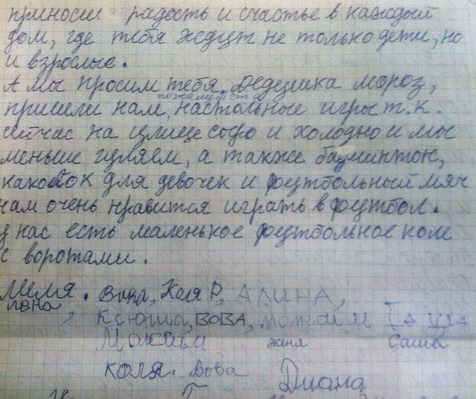 приносиш радость и счастье в каждый
дом, где тебя ждут не только дети, но
и взрослые.
А мы просим тебя, дедушка мороз,
пожалуйста
пришли нам, настольные игры т.к.
сейчас на улице сыро и холодно и мы
меньше гуляем, а также бадминтон,
для девочек и футбольный мяч
нам очень нравится играть в футбол.
У нас есть маленькое футбольное поле
с воротами.
Вика, Коля Р, АЛИНА,
лена,
Ксюша, ВОВА,
Максим женя Саша
коля. Вова Диана